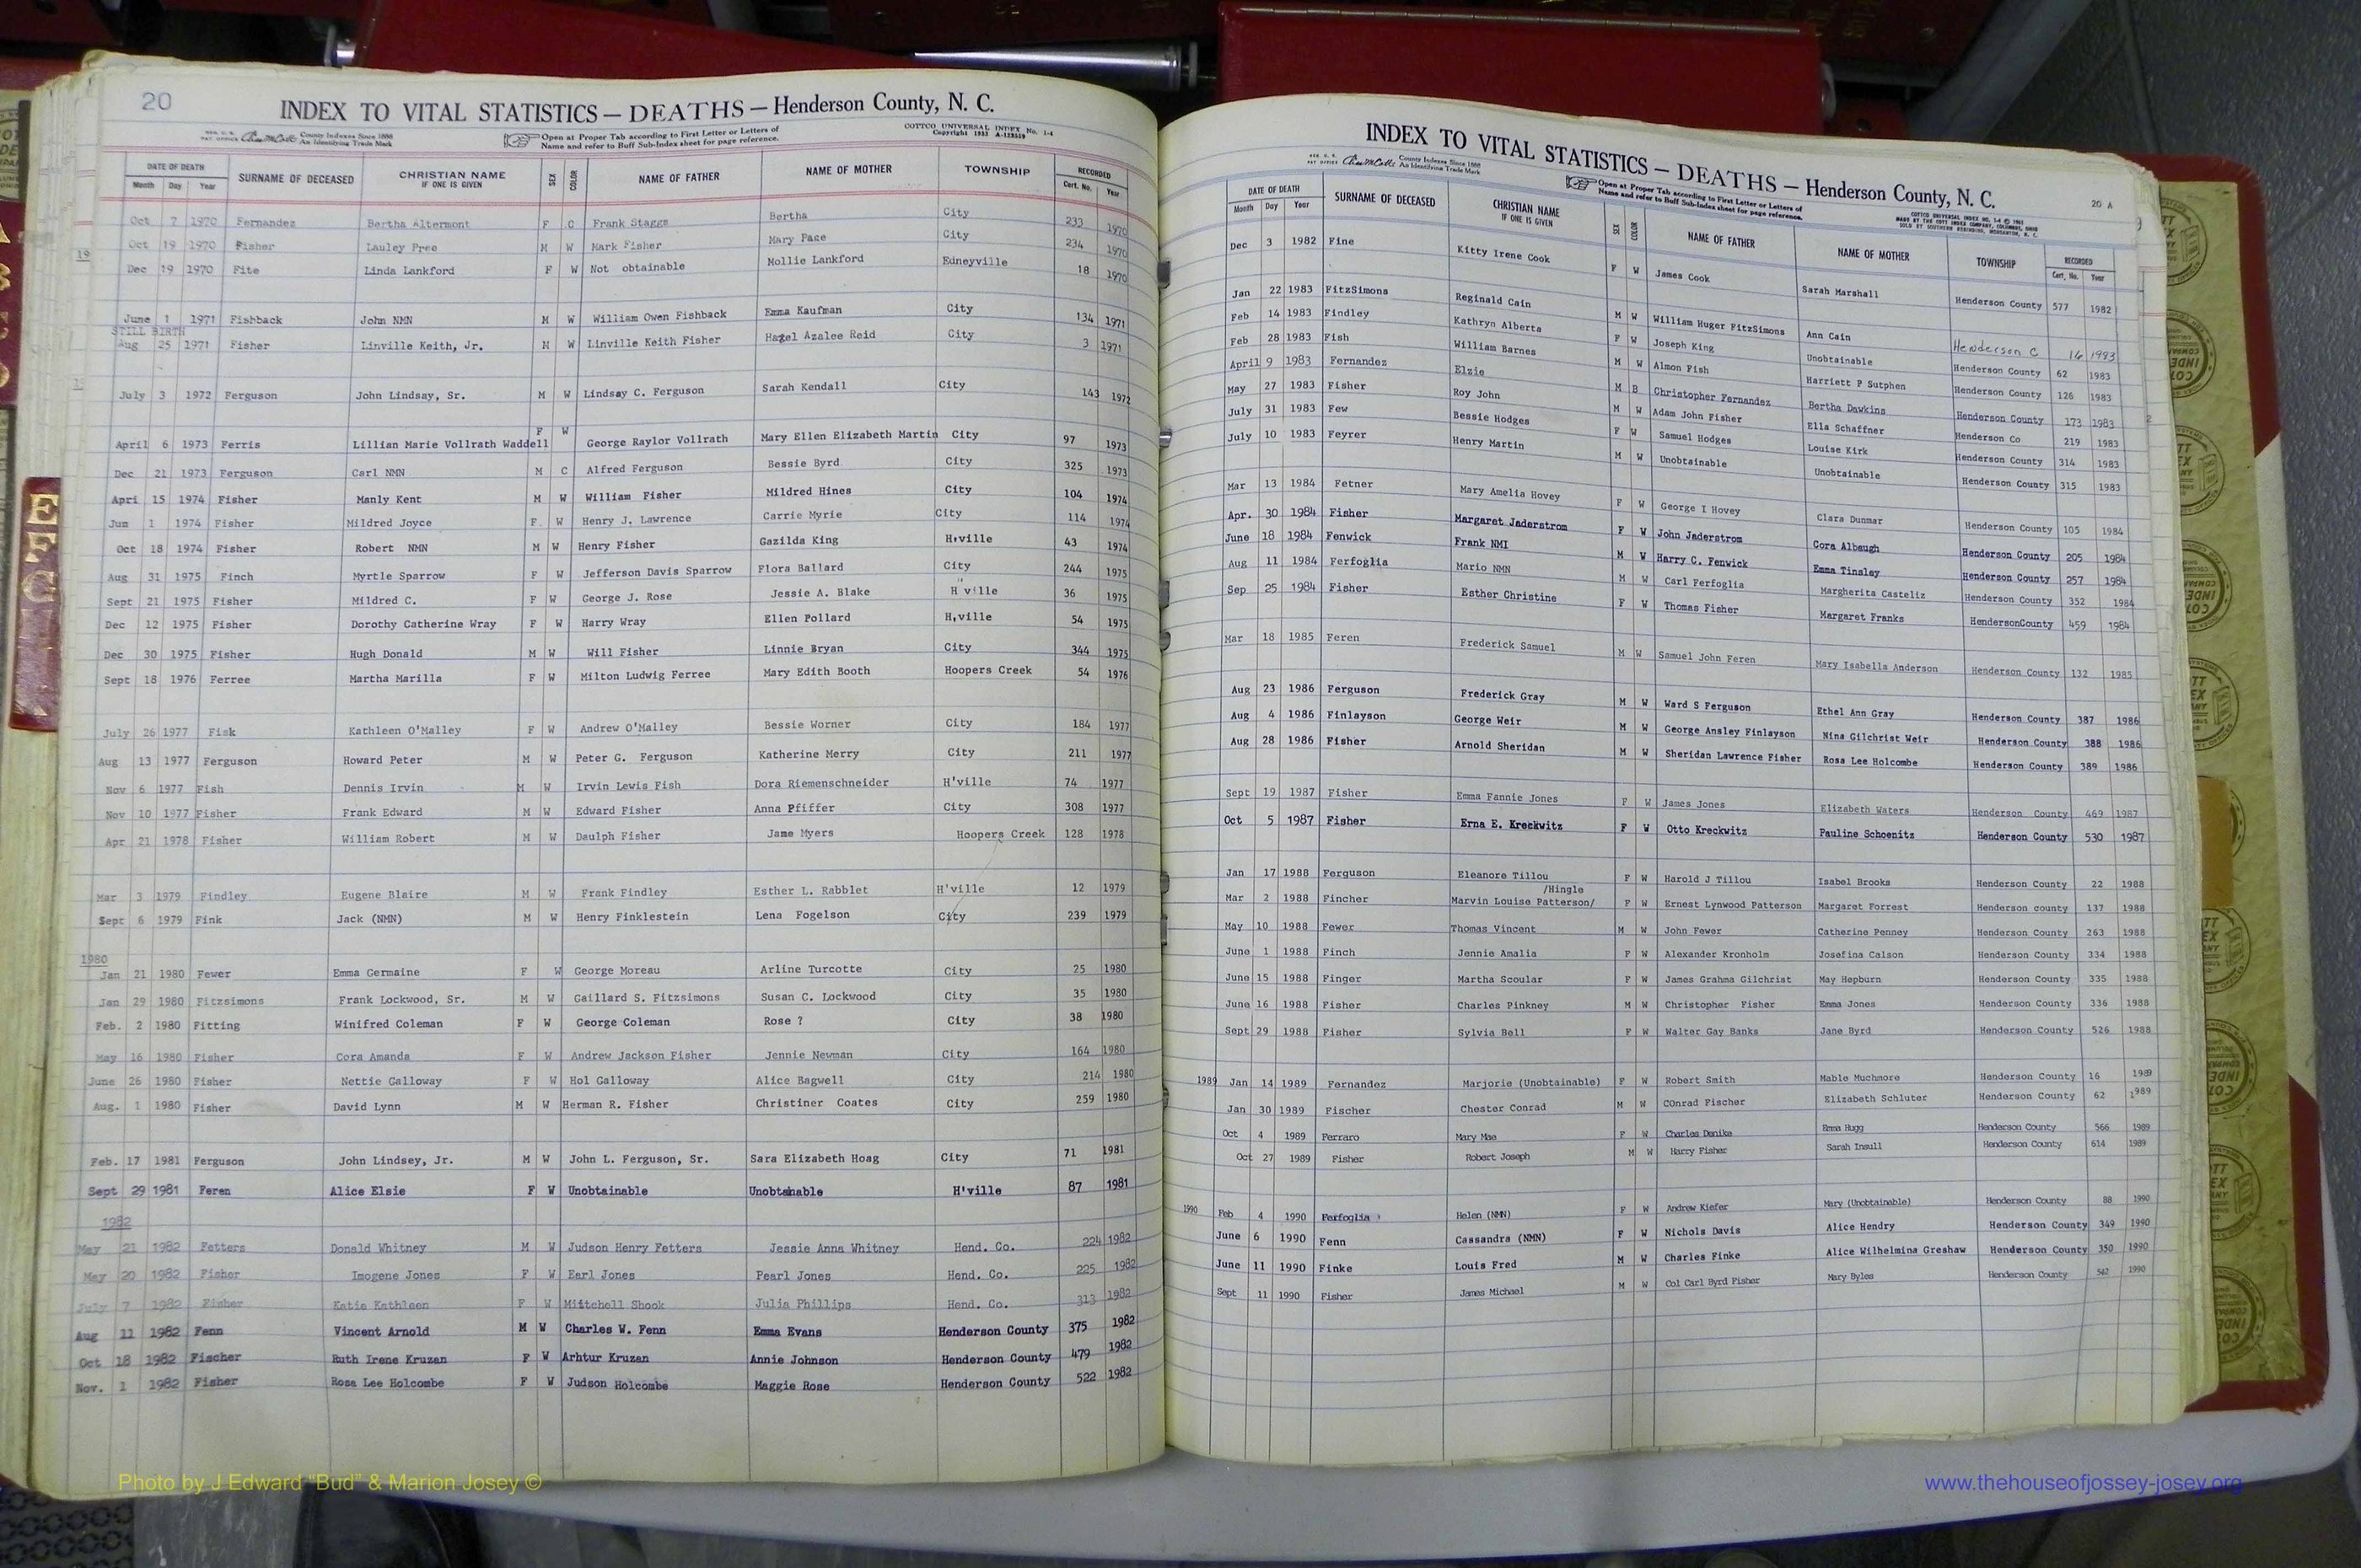 20
INDEX TO VITAL STATISTICS — DEATHS — Henderson County, N. C.
County Indexes Since 1888
An Identifying Trade Mark
Open at Proper Tab according to First Letter or Letters of
Name and refer to Buff Sub-Index sheet for page reference.
COTTCO UNIVERSAL INDEX No. 1-4
DATE OF DEATH
Month Day Year SURNAME OF DECEASED CHRISTIAN NAME IF ONE IS GIVEN SEX COLOR NAME OF FATHER NAME OF MOTHER TOWNSHIP RECORDED Cert. No. Year
Oct 7 1970 Fernandez Bertha Altermont F C Frank Staggs Bertha City 233 1970
Oct 19 1970 Fisher Lauley Pree M W Mark Fisher Mary Pace City 234 1970
Dec 19 1970 Fite Linda Lankford F W Not obtainable Mollie Lankford Edneyville 18 1970
June 1 1971 Fishback John NMN M W William Owen Fishback Emma Kaufman City 134 1971
STILL BIRTH
Aug 25 1971 Fisher Linville Keith, Jr. M W Linville Keith Fisher Hazel Azalee Reid City 3 1971
July 3 1972 Ferguson John Lindsay, Sr. M W Lindsay C. Ferguson Sarah Kendall City 143 1972
April 6 1973 Ferris Lillian Marie Vollrath Waddell F W George Raylor Vollrath Mary Ellen Elizabeth Martin City 97 1973
Dec 21 1973 Ferguson Carl NMN M C Alfred Ferguson Bessie Byrd City 325 1973
April 15 1974 Fisher Manly Kent M W William Fisher Mildred Hines City 104 1974
Jun 1 1974 Fisher Mildred Joyce F. W Henry J. Lawrence Carrie Myrie City 114 1974
Oct 18 1974 Fisher Robert NMN M W Henry Fisher Gazilda King H'ville 43 1974
Aug 31 1975 Finch Myrtle Sparrow F W Jefferson Davis Sparrow Flora Ballard City 244 1975
Sept 21 1975 Fisher Mildred C. F W George J. Rose Jessie A. Blake H'ville 36 1975
Dec 12 1975 Fisher Dorothy Catherine Wray F W Harry Wray Ellen Pollard H'ville 54 1975
Dec 30 1975 Fisher Hugh Donald M W Will Fisher Linnie Bryan City 344 1975
Sept 18 1976 Ferree Martha Marilla F W Milton Ludwig Ferree Mary Edith Booth Hoopers Creek 54 1976
July 26 1977 Fisk Kathleen O'Malley F W Andrew O'Malley Bessie Worner City 184 1977
Aug 13 1977 Ferguson Howard Peter M W Peter G. Ferguson Katherine Merry City 211 1977
Nov 6 1977 Fish Dennis Irvin M W Irvin Lewis Fish Dora Riemenschneider H'ville 74 1977
Nov 10 1977 Fisher Frank Edward M W Edward Fisher Anna Pfiffer City 308 1977
Apr 21 1978 Fisher William Robert M W Daulph Fisher Jame Myers Hoopers Creek 128 1978
Mar 3 1979 Findley Eugene Blaire M W Frank Findley Esther L. Rabblet H'ville 12 1979
Sept 6 1979 Fink Jack (NMN) M W Henry Finklestein Lena Fogelson City 239 1979
1980
Jan 21 1980 Fewer Emma Germaine F W George Moreau Arline Turcotte City 25 1980
Jan 29 1980 Fitzsimons Frank Lockwood, Sr. M W Gaillard S. Fitzsimons Susan C. Lockwood City 35 1980
Feb. 2 1980 Fitting Winifred Coleman F W George Coleman Rose ? City 38 1980
May 16 1980 Fisher Cora Amanda F W Andrew Jackson Fisher Jennie Newman City 164 1980
June 26 1980 Fisher Nettie Galloway F W Hol Galloway Alice Bagwell City 214 1980
Aug. 1 1980 Fisher David Lynn M W Herman R. Fisher Christiner Coates City 259 1980
Feb. 17 1981 Ferguson John Lindsey, Jr. M W John L. Ferguson, Sr. Sara Elizabeth Hoag City 71 1981
Sept 29 1981 Feren Alice Elsie F W Unobtainable Unobtanable H'ville 87 1981
1982
May 21 1982 Fetters Donald Whitney M W Judson Henry Fetters Jessie Anna Whitney Hend. Co. 224 1982
May 20 1982 Fisher Imogene Jones F W Earl Jones Pearl Jones Hend. Co. 225 1982
July 7 1982 Fisher Katie Kathleen F W Mittchell Shook Julia Phillips Hend. Co. 313 1982
Aug 11 1982 Fenn Vincent Arnold M W Charles W. Fenn Emma Evans Henderson County 375 1982
Oct 18 1982 Fischer Ruth Irene Kruzan F W Arhtur Kruzan Annie Johnson Henderson County 479 1982
Nov. 1 1982 Fisher Rosa Lee Holcombe F W Judson Holcombe Maggie Rose Henderson County 522 1982
INDEX TO VITAL STATISTICS — DEATHS — Henderson County, N. C.
County Indexes Since 1888
An Identifying Trade Mark
Open at Proper Tab according to First Letter or Letters of
Name and refer to Buff Sub-Index sheet for page reference.
20 A
DATE OF DEATH
Month Day Year SURNAME OF DECEASED CHRISTIAN NAME IF ONE IS GIVEN SEX COLOR NAME OF FATHER NAME OF MOTHER TOWNSHIP RECORDED Cert. No. Year
Dec 3 1982 Fine Kitty Irene Cook F W James Cook Sarah Marshall Henderson County 577 1982
Jan 22 1983 FitzSimons Reginald Cain M W William Huger FitzSimons Ann Cain Henderson C 16 1993
Feb 14 1983 Findley Kathryn Alberta F W Joseph King Unobtainable Henderson County 62 1983
Feb 28 1983 Fish William Barnes M W Almon Fish Harriett P Sutphen Henderson County 126 1983
April 9 1983 Fernandez Elzie M B Christopher Fernandez Bertha Dawkins Henderson County 173 1983
May 27 1983 Fisher Roy John M W Adam John Fisher Ella Schaffner Henderson Co 219 1983
July 31 1983 Few Bessie Hodges F W Samuel Hodges Louise Kirk Henderson County 314 1983
July 10 1983 Feyrer Henry Martin M W Unobtainable Unobtainable Henderson County 315 1983
Mar 13 1984 Fetner Mary Amelia Hovey F W George I Hovey Clara Dunmar Henderson County 105 1984
Apr. 30 1984 Fisher Margaret Jaderstrom F W John Jaderstrom Cora Albaugh Henderson County 205 1984
June 18 1984 Fenwick Frank NMI M W Harry C. Fenwick Emma Tinsley Henderson County 257 1984
Aug 11 1984 Ferfoglia Mario NMN M W Carl Ferfoglia Margherita Casteliz Henderson County 352 1984
Sep 25 1984 Fisher Esther Christine F W Thomas Fisher Margaret Franks HendersonCounty 459 1984
Mar 18 1985 Feren Frederick Samuel M W Samuel John Feren Mary Isabella Anderson Henderson County 132 1985
Aug 23 1986 Ferguson Frederick Gray M W Ward S Ferguson Ethel Ann Gray Henderson County 387 1986
Aug 4 1986 Finlayson George Weir M W George Ansley Finlayson Nina Gilchrist Weir Henderson County 388 1986
Aug 28 1986 Fisher Arnold Sheridan M W Sheridan Lawrence Fisher Rosa Lee Holcombe Henderson County 389 1986
Sept 19 1987 Fisher Emma Fannie Jones F W James Jones Elizabeth Waters Henderson County 469 1987
Oct 5 1987 Fisher Erna E. Kreckwitz F W Otto Kreckwitz Pauline Schoenitz Henderson County 530 1987
Jan 17 1988 Ferguson Eleanore Tillou F W Harold J Tillou Isabel Brooks Henderson County 22 1988
/Hingle
Mar 2 1988 Fincher Marvin Louise Patterson/ F W Ernest Lynwood Patterson Margaret Forrest Henderson county 137 1988
May 10 1988 Fewer Thomas Vincent M W John Fewer Catherine Penney Henderson County 263 1988
June 1 1988 Finch Jennie Amalia F W Alexander Kronholm Josefina Calson Henderson County 334 1988
June 15 1988 Finger Martha Scoular F W James Grahma Gilchrist May Hepburn Henderson County 335 1988
June 16 1988 Fisher Charles Pinkney M W Christopher Fisher Emma Jones Henderson County 336 1988
Sept 29 1988 Fisher Sylvia Bell F W Walter Gay Banks Jane Byrd Henderson County 526 1988
1989 Jan 14 1989 Fernandez Marjorie (Unobtainable) F W Robert Smith Mable Muchmore Henderson County 16 1989
Jan 30 1989 Fischer Chester Conrad M W COnrad Fischer Elizabeth Schluter Henderson County 62 1989
Oct 4 1989 Ferraro Mary Mae F W Charles Denike Emma Hugg Henderson County 566 1989
Oct 27 1989 Fisher Robert Joseph M W Harry Fisher Sarah Insull Henderson County 614 1989
1990 Feb 4 1990 Ferfoglia Helen (NMN) F W Andrew Kiefer Mary (Unobtainable) Henderson County 88 1990
June 6 1990 Fenn Cassandra (NMN) F W Nichols Davis Alice Hendry Henderson County 349 1990
June 11 1990 Finke Louis Fred M W Charles Finke Alice Wilhelmina Greshaw Henderson County 350 1990
Sept 11 1990 Fisher James Michael M W Col Carl Byrd Fisher Mary Byles Henderson County 542 1990
E
F
G
Photo by J Edward "Bud" & Marion Josey ©
www.thehouseofjossey-josey.org